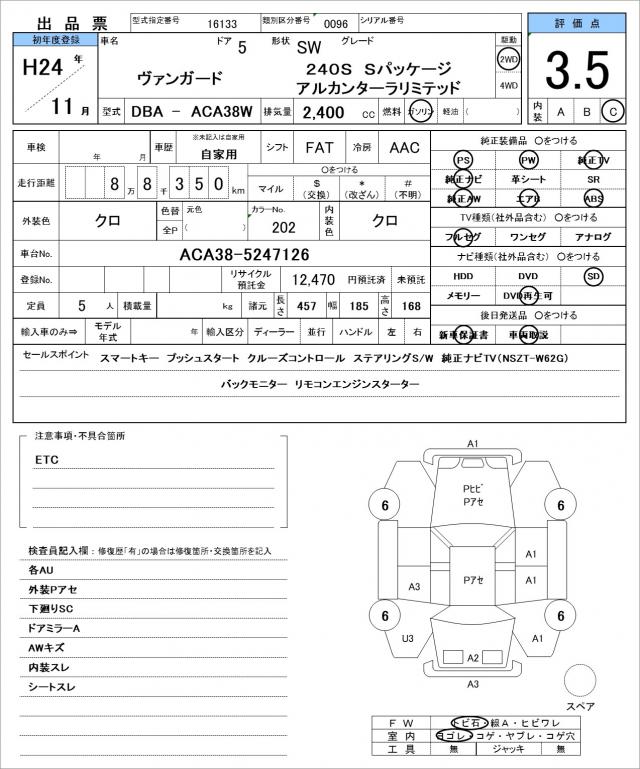 出品票 型式指定番号 16133 類別区分番号 0096 シリアル番号
評価点
初年度登録 車名 ドア 5 形状 SW グレード 駆動
H24 年 ヴァンガード 240S Sパッケージ 2WD
アルカンターラリミテッド 4WD
3.5
11 月 型式 DBA － ACA38W 排気量 2,400 CC 燃料 ガソリン 軽油 ( )
内装 A B C
車検 年 月 車歴 ※未記入は自家用 自家用 シフト FAT 冷房 AAC
走行距離 8 万 8 千 3 5 0 km ○をつける
マイル $ (交換) * (改ざん) # (不明)
外装色 クロ 色替 元色 カラーNo. 内装色 クロ
全P ( ) 202
車台No. ACA38-5247126
登録No. リサイクル預託金 12,470 円預託済 未預託
定員 5 人 積載量 kg 諸元 長さ 457 幅 185 高さ 168
輸入車のみ⇒ モデル年式 年 輸入区分 ディーラー 並行 ハンドル 左 右
純正装備品 ○をつける
PS PW 純正TV
純正ナビ 革シート SR
純正AW エアB ABS
TV種類(社外品含む) ○をつける
フルセグ ワンセグ アナログ
ナビ種類(社外品含む) ○をつける
HDD DVD SD
メモリー DVD再生可
後日発送品 ○をつける
新車保証書 車両取説
セールスポイント スマートキー プッシュスタート クルーズコントロール ステアリングS/W 純正ナビTV(NSZT-W62G)
バックモニター リモコンエンジンスターター
注意事項・不具合箇所
ETC
検査員記入欄：修復歴「有」の場合は修復箇所・交換箇所を記入
各AU
外装Pアセ
下廻りSC
ドアミラーA
AWキズ
内装スレ
シートスレ
A1
Pヒビ
Pアセ
6 6
A1
A3 Pアセ A1
6 6
U3 A1
A2
A3
スペア
FW トビ石・線A・ヒビワレ
室内 ヨゴレ・コゲ・ヤブレ・コゲ穴
工具 無 ジャッキ 無